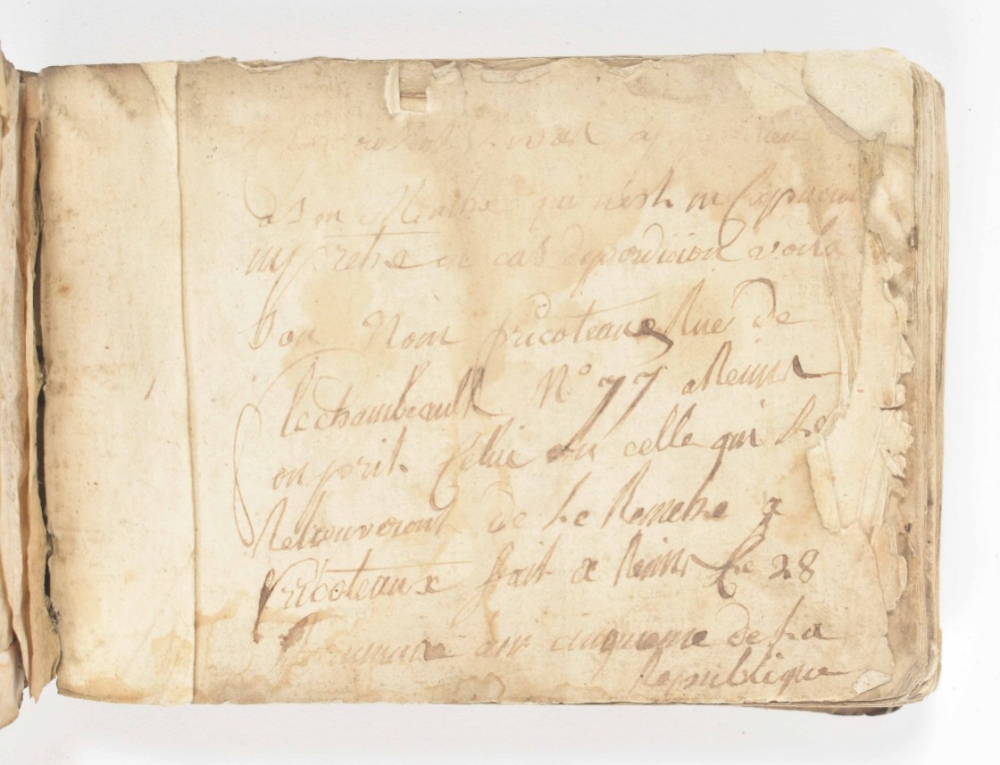 à son Maitre qui n'est ni Capucin
ny pretre en cas de perdicion voila
Son Nom fricoteaux Rue de
lechambeault N° 77 a Reims
on prit Celui ou celle qui Le
Retrouveront de Le Remetre a
fricoteaux fait a Reims Le 28
frumaire ans cinquieme de La
Republique